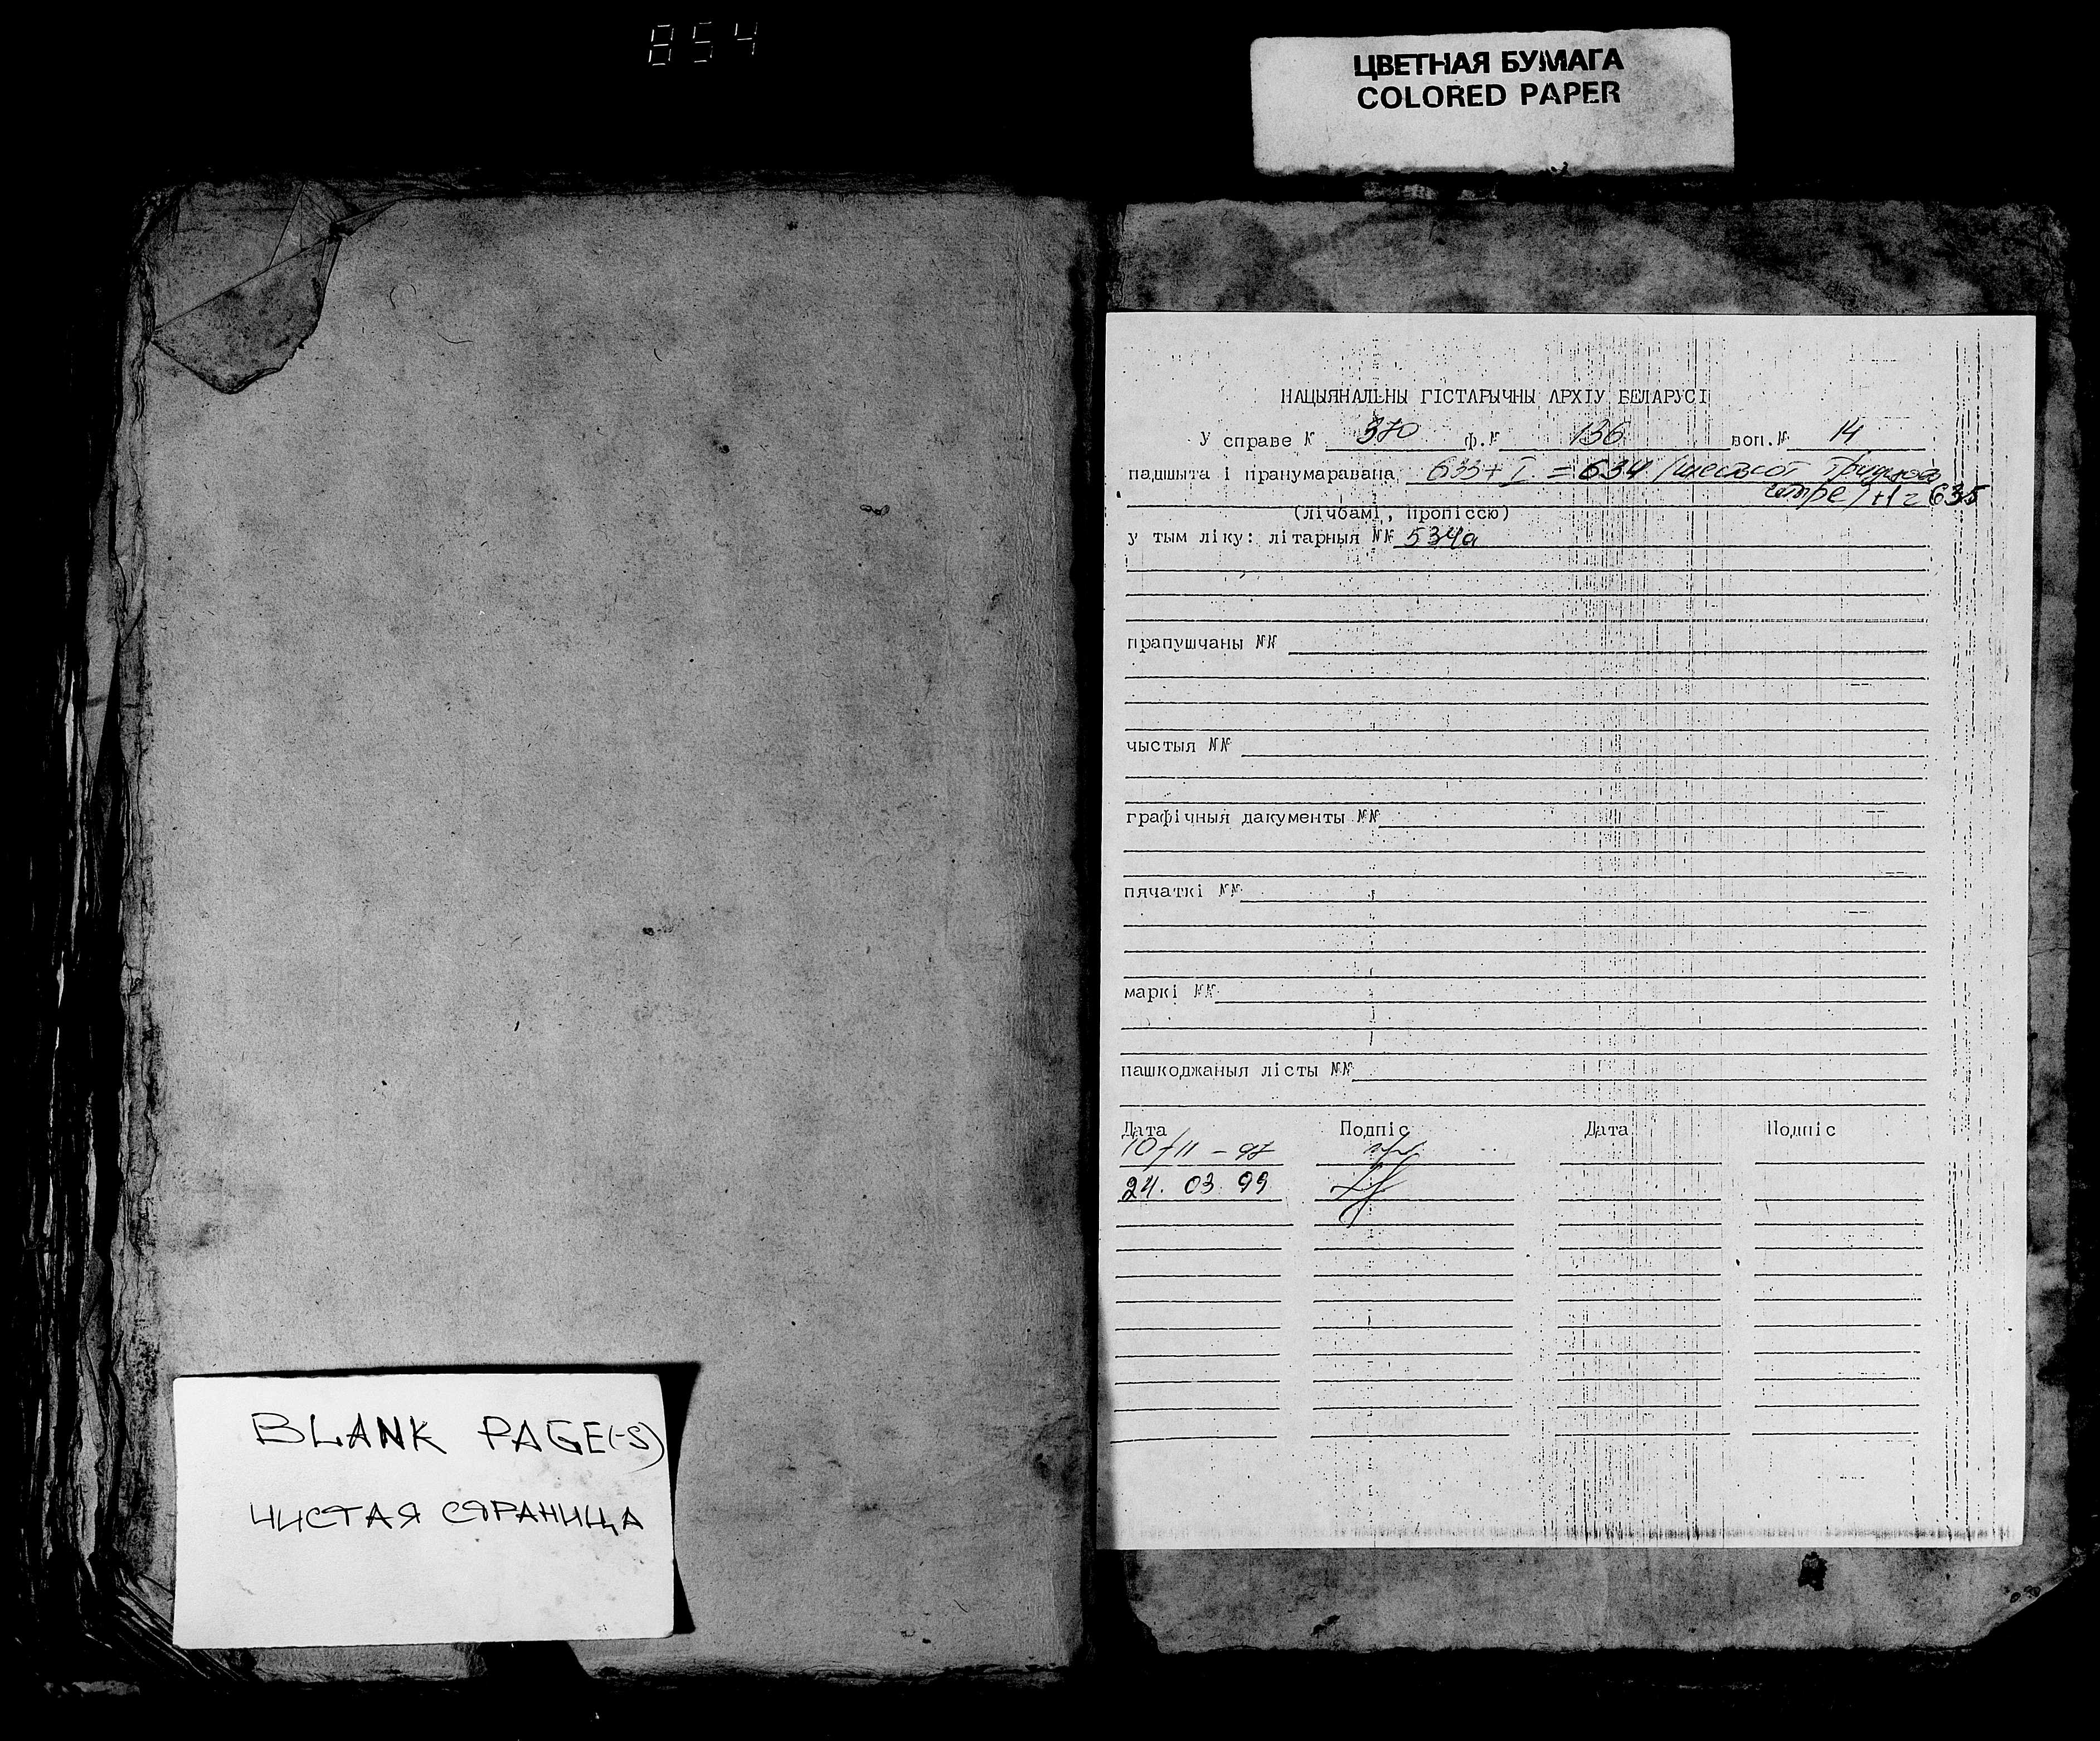 854
ЦВЕТНАЯ БУМАГА
COLORED PAPER
НАЦЫЯНАЛЬНЫ ГІСТАРЫЧНЫ АРХІУ БЕЛАРУСІ
У справе № 370 ф.№ 136 воп.№ 14
падшыта і пранумаравана 633+I = 634 /шестсот тридцать
четыре/ +1 = 635
(лічбамі, пропіссю)
у тым ліку: літарныя №№ 534а
прапушчаны №№
чыстыя №№
графічныя дакументы №№
пячаткі №№
маркі №№
пашкоджаныя лісты №№
Дата Подпіс Дата Подпіс
10/11 - 97
24. 03. 99
BLANK PAGE(-S)
ЧИСТАЯ СТРАНИЦА